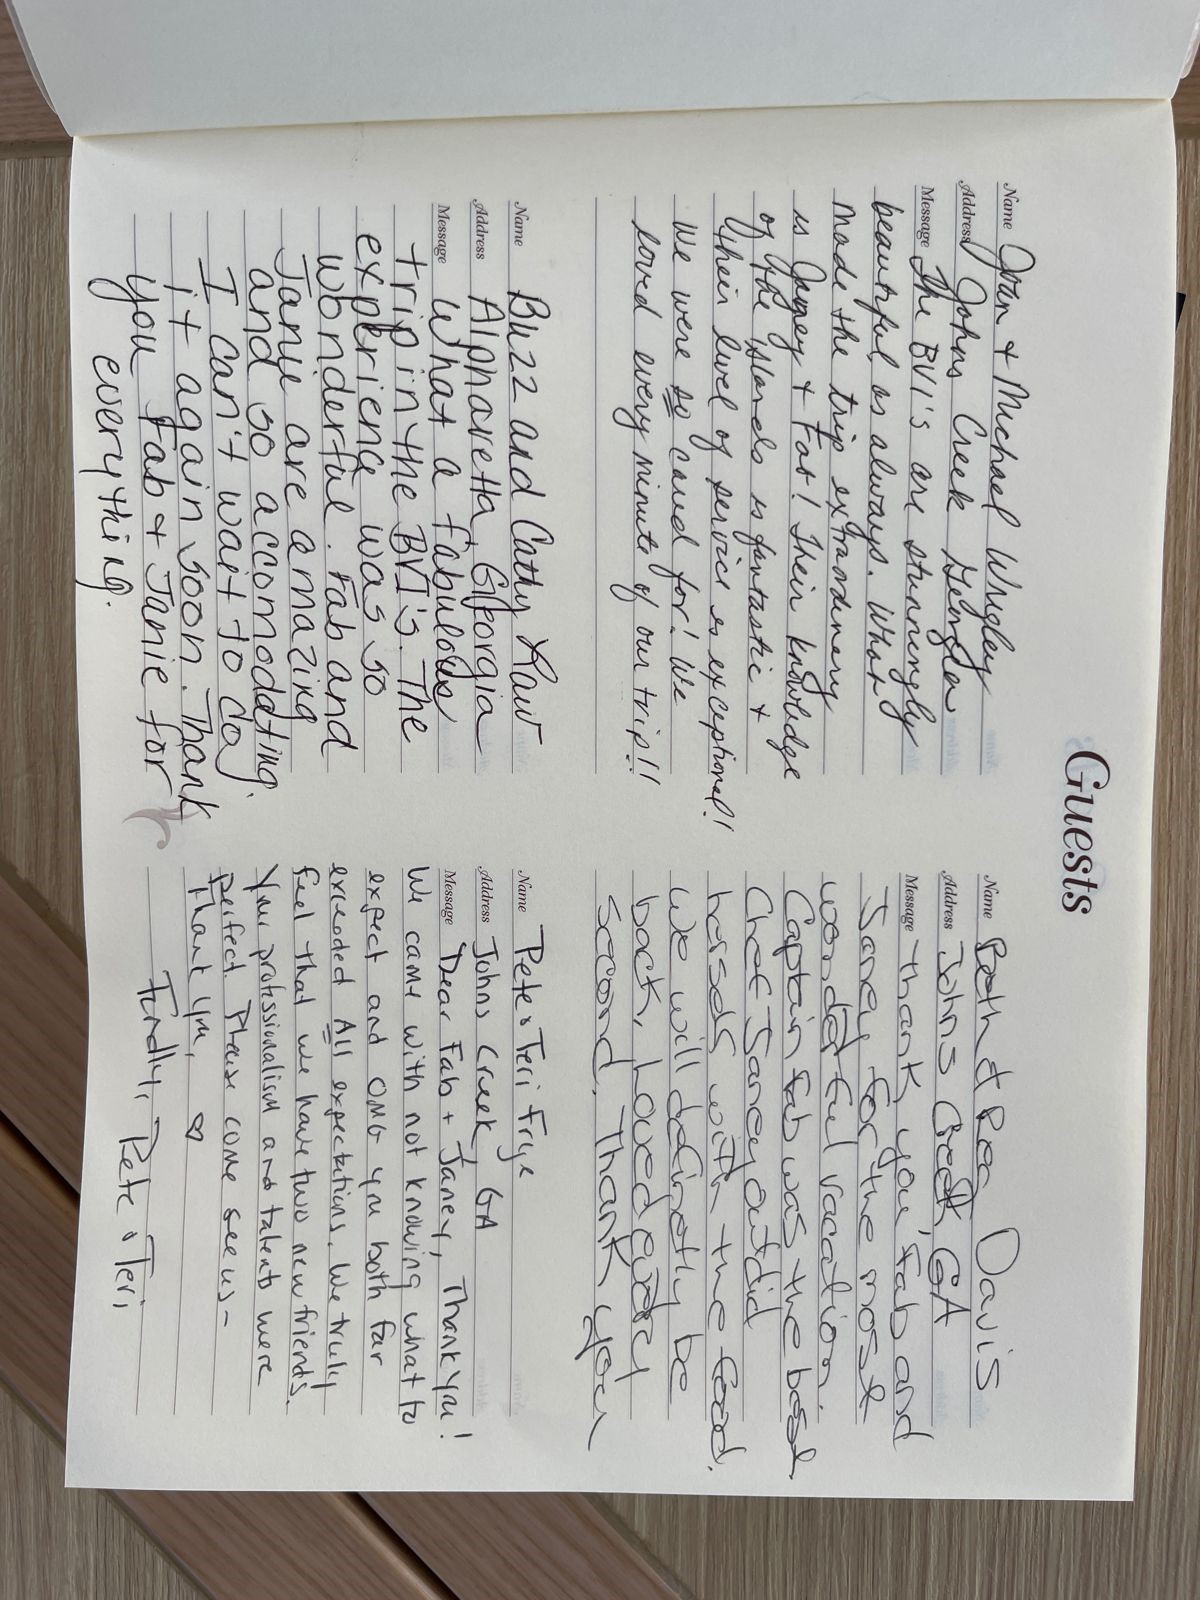 Guests
Name Joan & Michael Wrigley
Address Johns Creek Georgia
Message The BVI's are stunningly
beautiful as always. What
made the trip extraordinary
is Janey & Fab! Their knowledge
of the islands is fantastic &
their level of service is exceptional!!
We were so cared for! We
loved every minute of our trip!!
Name Buzz and Cathy
Address Alpharetta, Georgia
Message What a fabulous
trip in the BVI's. The
experience was so
wonderful. Fab and
Janie are amazing
and so accomodating.
I can't wait to do
it again soon. Thank
you Fab & Janie for
everything.
Name Beth & Davis
Address Johns Creek, GA
Message Thank you, Fab and
Janey for the most
wonderful vacation.
Captain Fab was the best.
Chef Janey outdid
herself with the food.
We will definetly be
back. Loved every
second. Thank you
Name Pete & Teri Frye
Address Johns Creek, GA
Message Dear Fab & Janey, Thank you!
We came with not knowing what to
expect and OMG you both far
exceeded All expectations. We truly
feel that we have two new friends.
Your professionalism and talents were
perfect. Please come see us -
Thank you,
Fondly, Pete & Teri